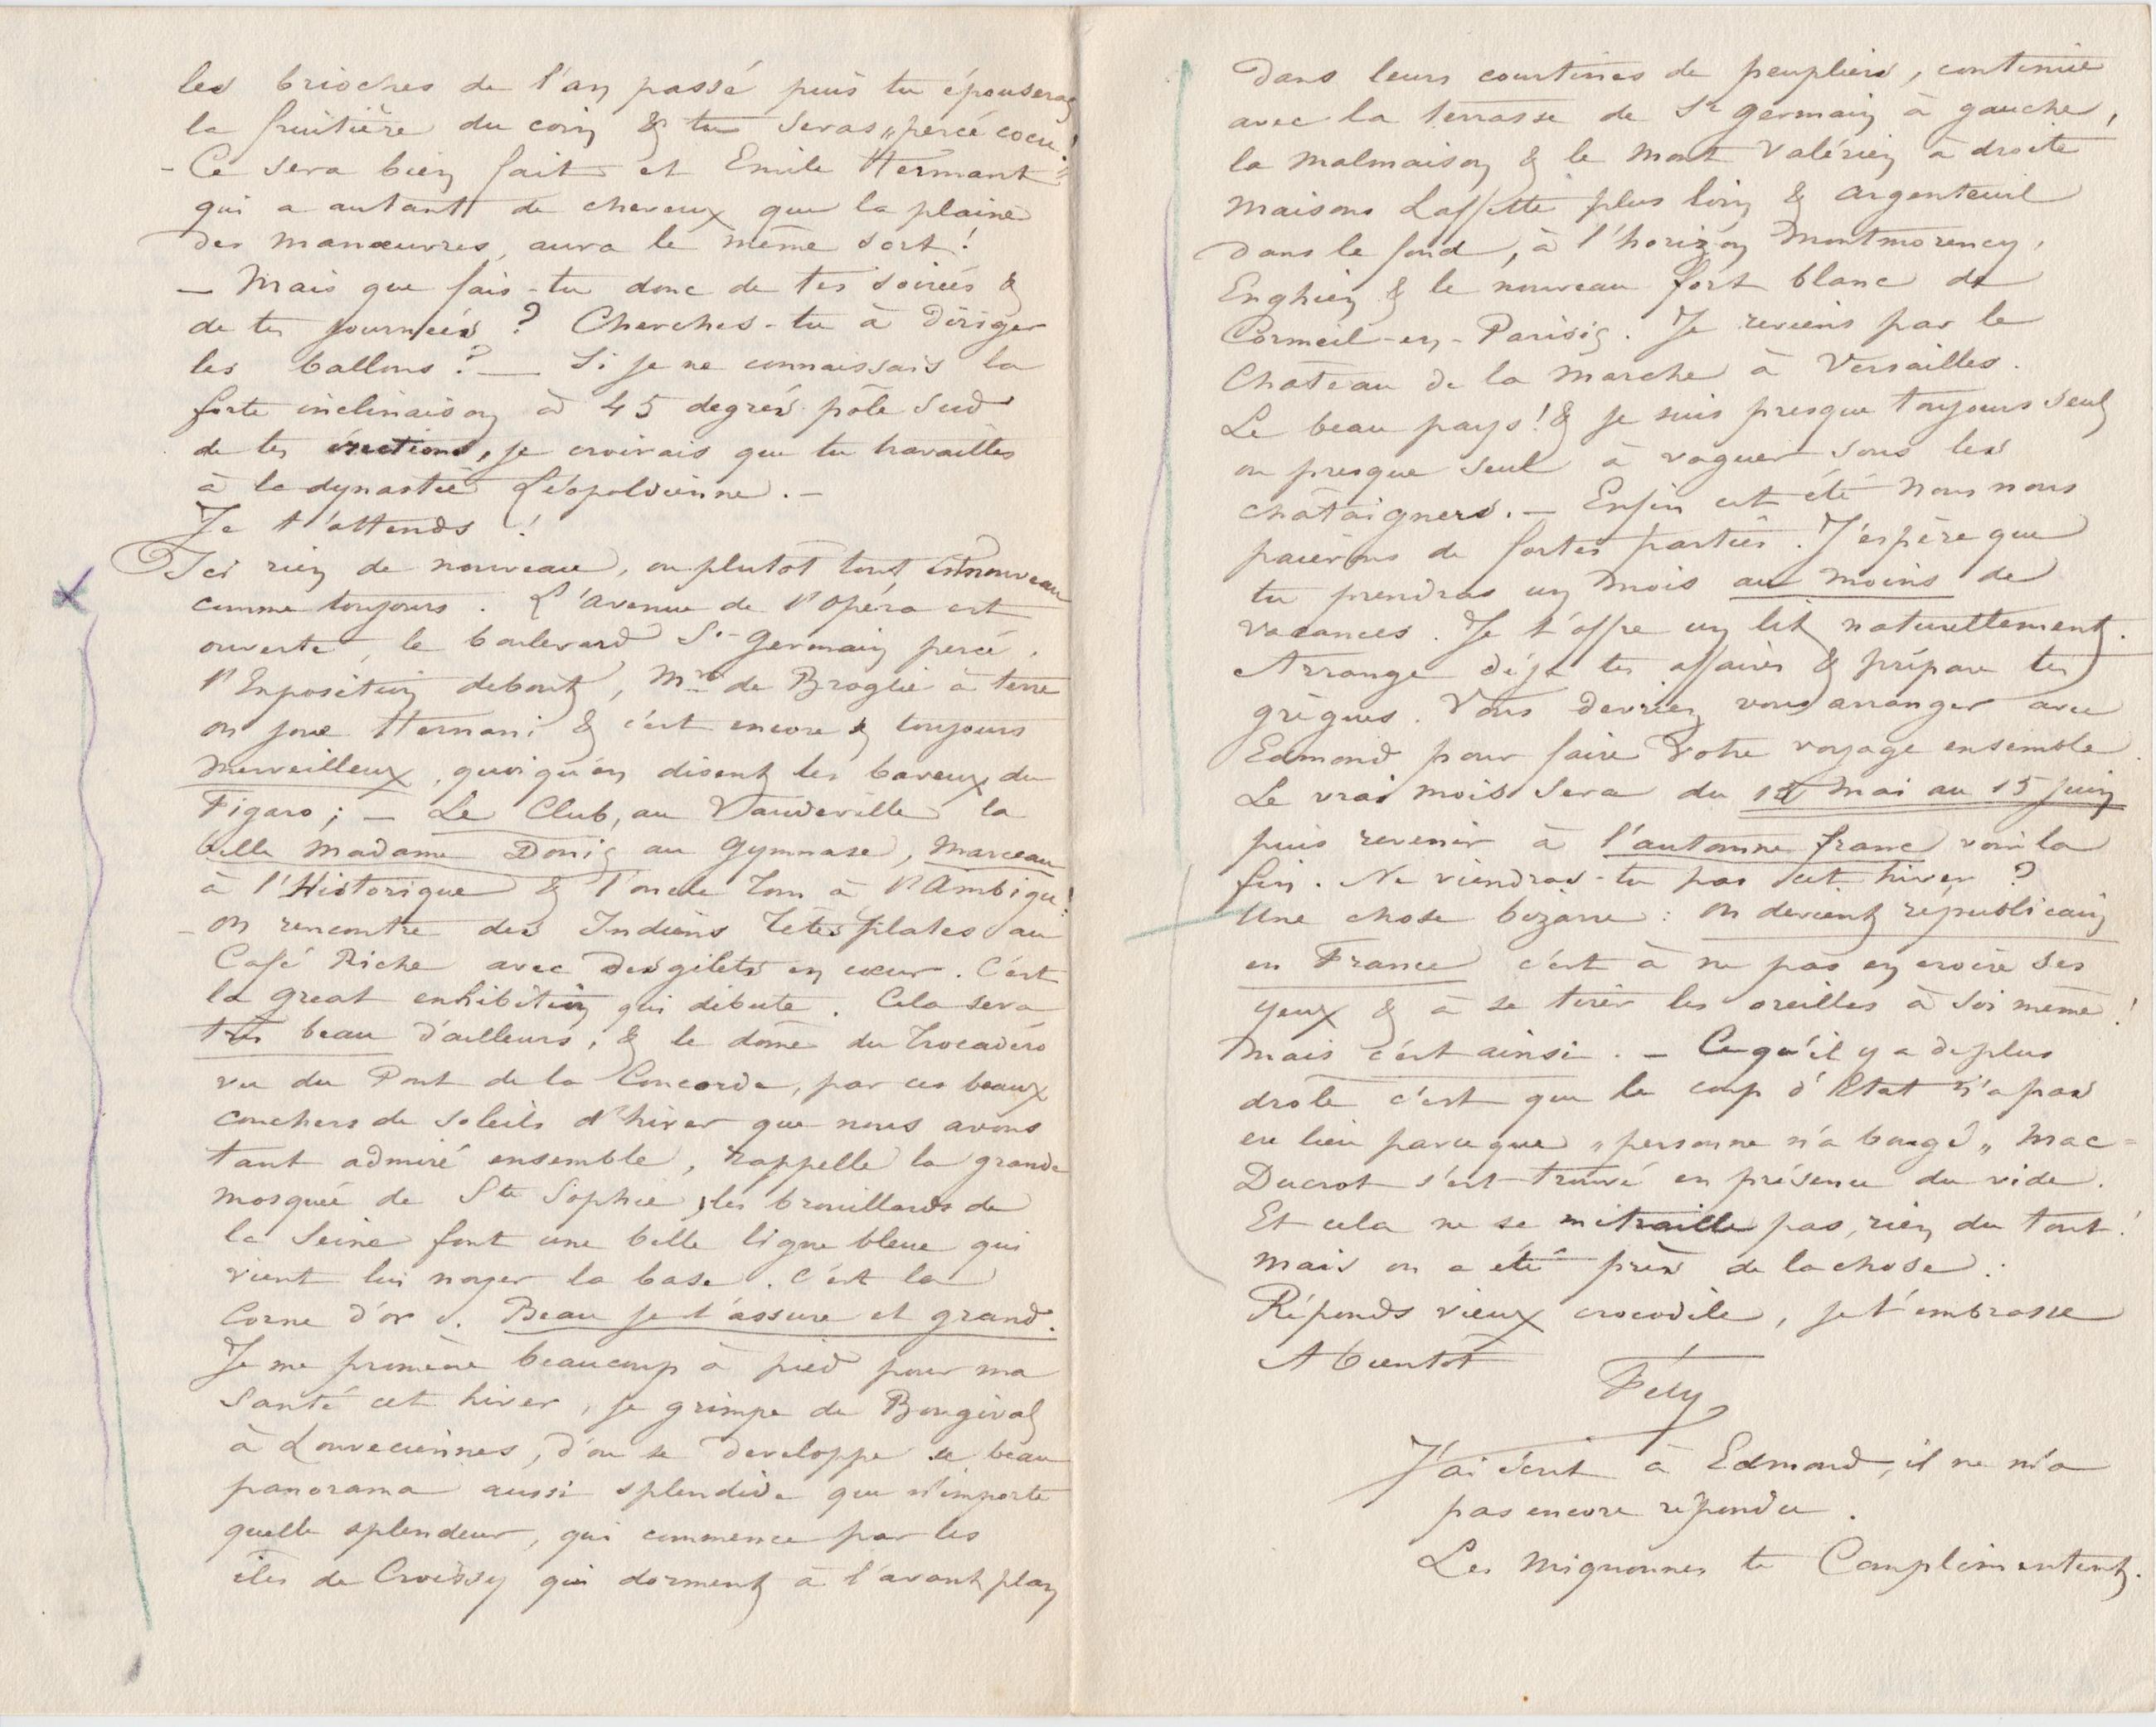 les brioches de l'an passé puis tu épouseras
la fruitière du coin & tu seras „percé cocu!„
- Ce sera bien fait et Emile Hermant
qui a autant de cheveux que la plaine
des manœuvres, aura le même sort!
— Mais que fais-tu donc de tes soirées &
de tes journées? Cherches-tu à diriger
les ballons? — Si je ne connaissais la
forte inclinaison à 45 degrés pôle sud
de tes érections, je croirais que tu travailles
à la dynastie Léopoldienne. —
Je t'attends!
Ici rien de nouveau, ou plutôt tout est nouveau
comme toujours. L'avenue de l'Opéra est
ouverte, le boulevard St-Germain percé,
l'Exposition debout, Mr de Broglie à terre
on joue Hernani & c'est encore & toujours
merveilleux, quoiqu'en disent les baveux du
Figaro; — Le Club, au Vaudeville la
belle Madame Donis au Gymnase, Marceau
à l'Historique & l'oncle Tom à l'Ambigu!
- On rencontre des Indiens Têtes plates au
Café Riche avec des gilets en cœur. C'est
la great exhibition qui débute. Cela sera
très beau d'ailleurs, & le dôme du Trocadéro
vu du Pont de la Concorde, par ces beaux
couchers de soleils d'hiver que nous avons
tant admiré ensemble, rappelle la grande
mosquée de Ste Sophie, les brouillards de
la Seine font une belle ligne bleue qui
vient lui noyer la base. C'est la
Corne d'or. Beau je t'assure et grand.
Je me promène beaucoup à pied pour ma
santé cet hiver, je grimpe de Bougival
à Louveciennes, d'ou se developpe ce beau
panorama aussi splendide que n'importe
quelle splendeur, qui commence par les
îles de Croissy qui dorment à l'avant plan
dans leurs courtines de peupliers, continue
avec la terrasse de St Germain à gauche,
la Malmaison & le Mont Valérien à droite
Maisons Laffitte plus loin & Argenteuil
dans le fond, à l'horizon Montmorency,
Enghien & le nouveau fort blanc de
Cormeil-en-Parisis. Je reviens par le
Chateau de la Marche à Versailles.
Le beau pays! & je suis presque toujours seul
ou presque seul à vaguer sous les
châtaigners. — Enfin cet été nous nous
paierons de fortes parties. J'espère que
tu prendras un mois au moins de
vacances. Je t'offre un lit naturellement.
Arrange déjà tes affaires & prépare tes
grègues. Vous devriez vous arranger avec
Edmond pour faire votre voyage ensemble.
Le vrai mois sera du 15 Mai au 15 juin
puis revenir à l'automne franc voir la
fin. Ne viendras-tu pas cet hiver?
Une chose bizarre: on devient républicain
en France c'est à ne pas en croire ses
yeux & à se tirer les oreilles à soi même!
Mais c'est ainsi. — Ce qu'il y a de plus
drôle c'est que le coup d'Etat n'a pas
eu lieu parce que „personne n'a bougé„ Mac-
Ducrot s'est trouvé en présence du vide.
Et cela ne se mitraille pas, rien du tout!
Mais on a été près de la chose.
Réponds vieux crocodile, je t'embrasse
A bientôt
Fély
J'ai écrit à Edmond, il ne m'a
pas encore répondu.
Les Mignonnes te Complimentent.